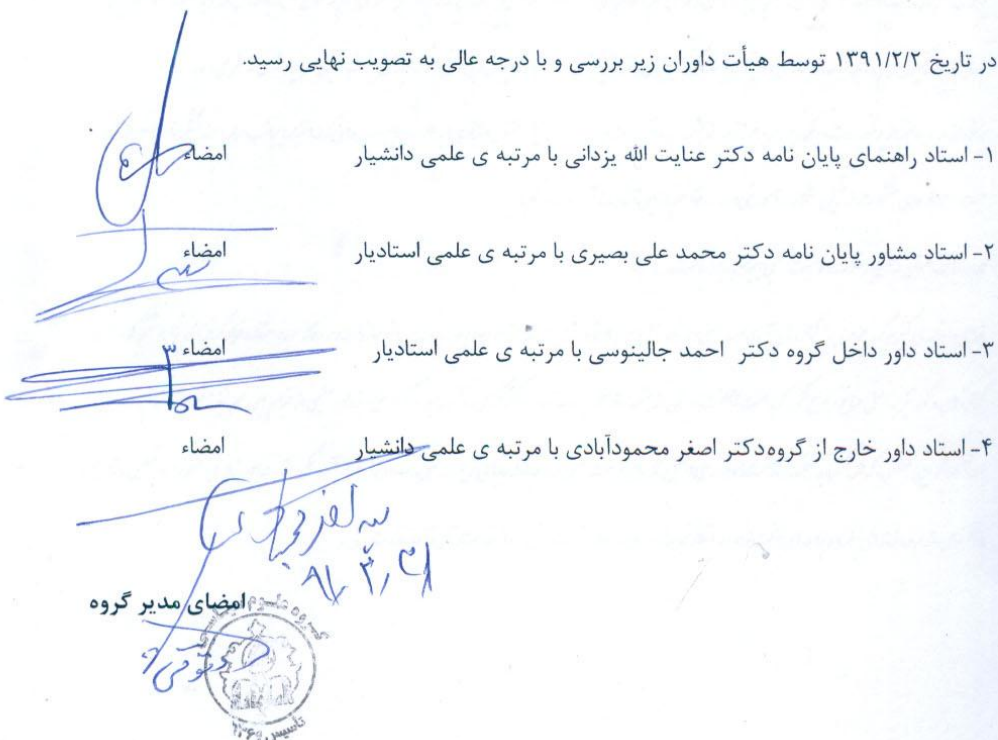 در تاریخ ۱۳۹۱/۲/۲ توسط هیأت داوران زیر بررسی و با درجه عالی به تصویب نهایی رسید.
۱- استاد راهنمای پایان نامه دکتر عنایت الله یزدانی با مرتبه ی علمی دانشیار امضاء
۲- استاد مشاور پایان نامه دکتر محمد علی بصیری با مرتبه ی علمی استادیار امضاء
۳- استاد داور داخل گروه دکتر احمد جالینوسی با مرتبه ی علمی استادیار امضاء
۴- استاد داور خارج از گروه دکتر اصغر محمودآبادی با مرتبه ی علمی دانشیار امضاء
امضای مدیر گروه
گروه علوم
تاسیس